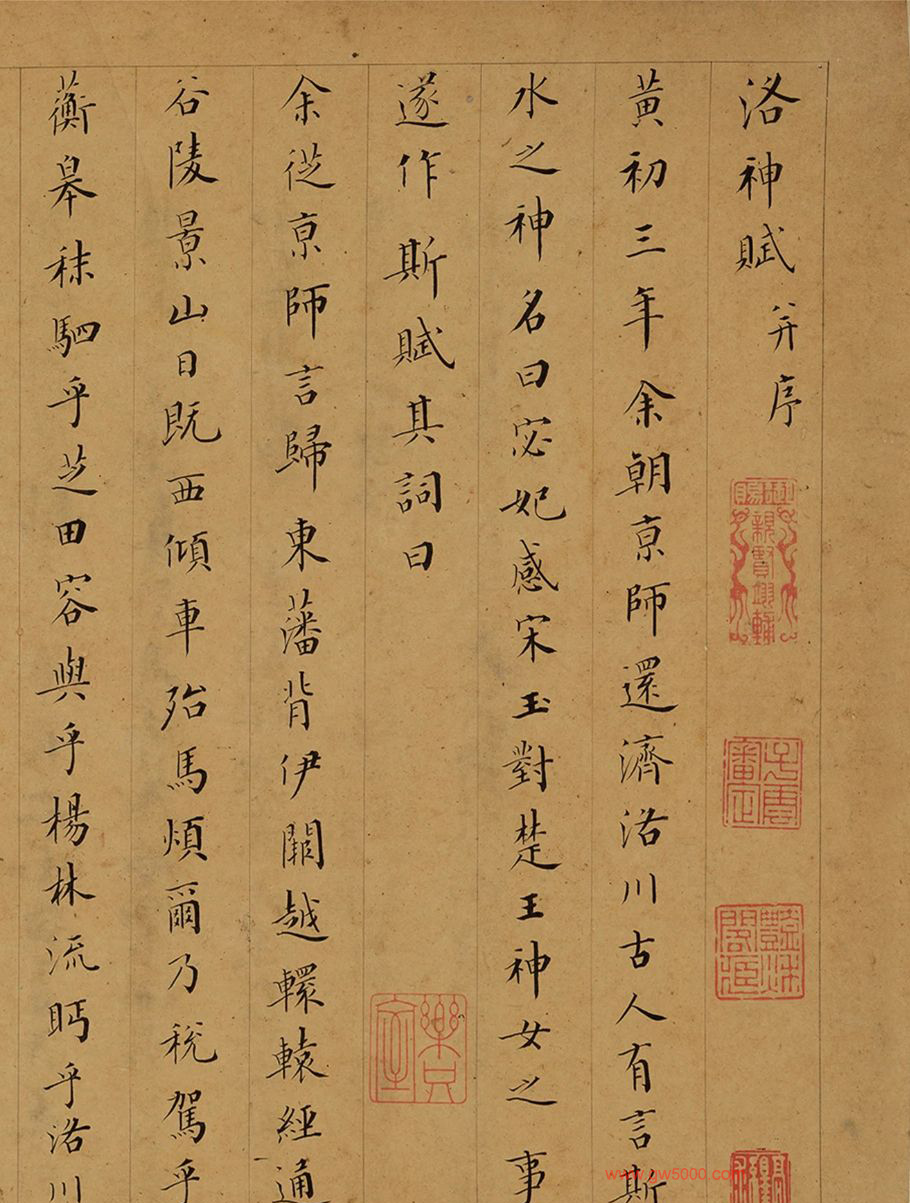 洛神賦 并序
黃初三年余朝京師還濟洛川古人有言斯
水之神名曰宓妃感宋玉對楚王神女之事
遂作斯賦其詞曰
余從京師言歸東藩背伊闕越轘轅經通
谷陵景山日既西傾車殆馬煩爾乃稅駕乎
蘅皋秣駟乎芝田容與乎楊林流眄乎洛川
樂只室
www.gw5000.com